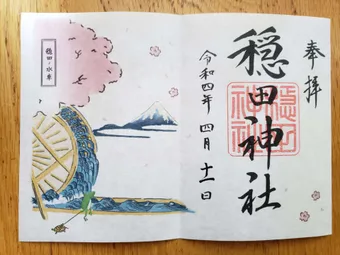 奉拝
穏田神社
穏田神社
令和四年四月十一日
穏田・水車